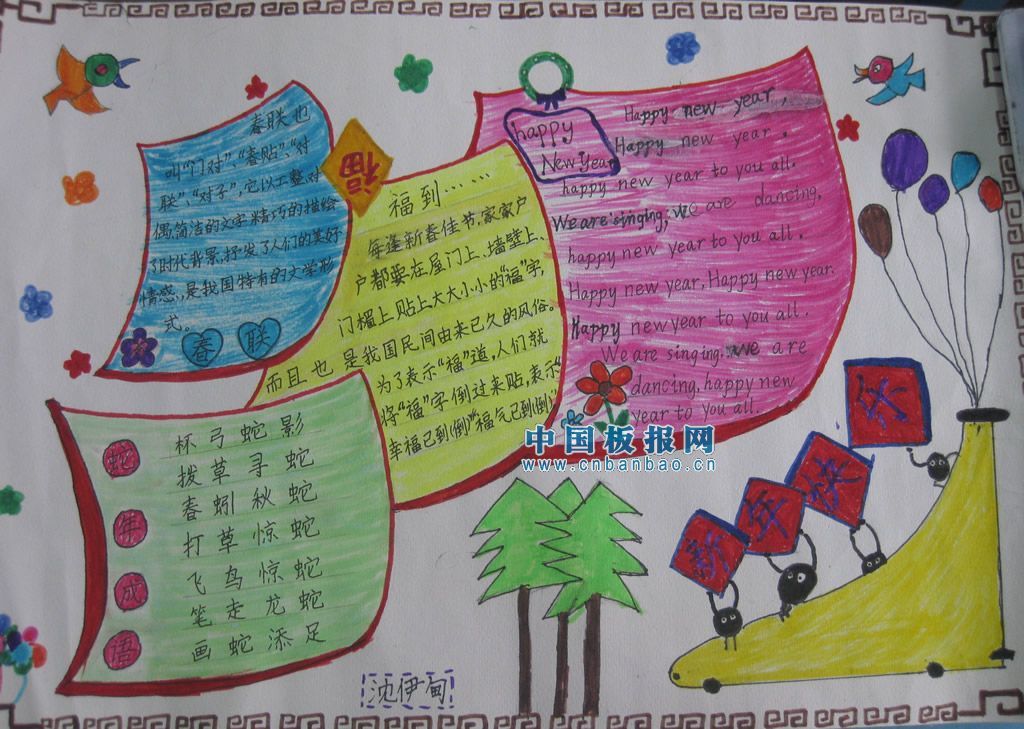 春联也
叫“门对”、“春贴”、“对
联”、“对子”,它以工整对
偶、简洁的文字精巧的描绘
了时代背景,抒发了人们的美好
情感,是我国特有的文学形
式。
春联
福
福到……
每逢新春佳节,家家户
户都要在屋门上、墙壁上、
门楣上贴上大大小小的“福”字,
而且也 是我国民间由来已久的风俗。
为了表示“福”道,人们就
将“福”字倒过来贴,表示“
幸福已到(倒)”“福气已到(倒)
happy
New Year
Happy new year,
Happy new year.
happy new year to you all.
We are singing, we are dancing,
happy new year to you all.
Happy new year, Happy new year.
Happy new year to you all.
We are singing. we are
dancing, happy new
year to you all.
蛇年成语
杯弓蛇影
拨草寻蛇
春蚓秋蛇
打草惊蛇
飞鸟惊蛇
笔走龙蛇
画蛇添足
新年快乐
沈伊甸
中国板报网
www.cnbanbao.cn